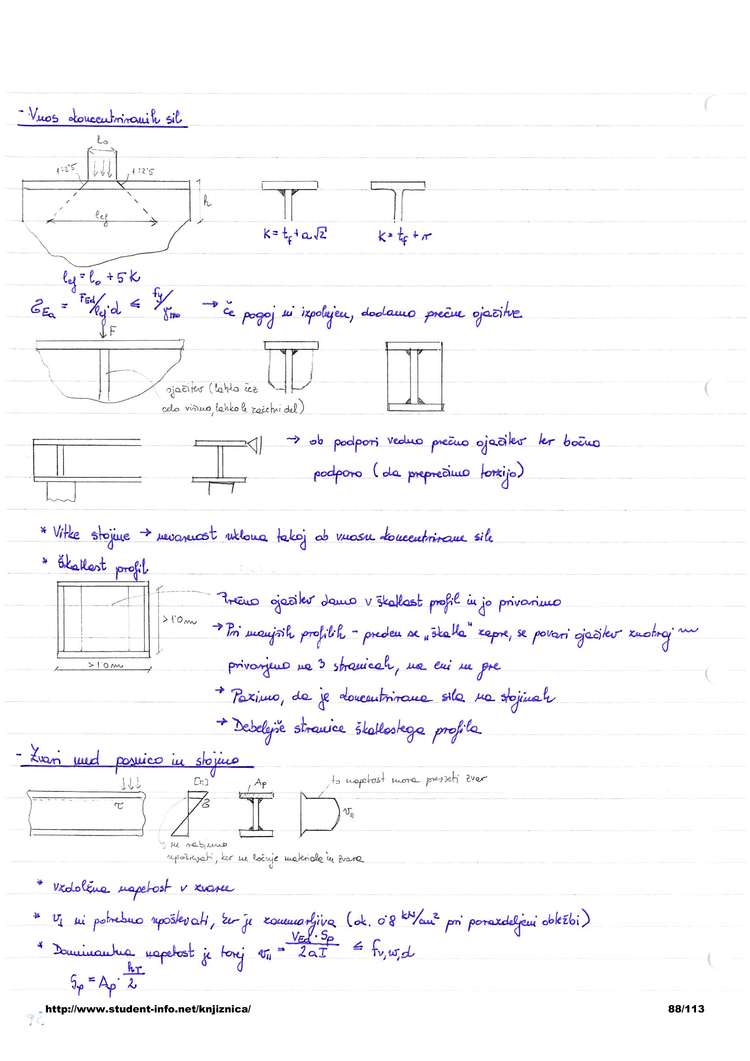 - Vnos koncentriranih sil
l₀
1:2'5 1:2'5
h
lef
K = tf + a√2 K = tf + r
lef = l₀ + 5K
FEd/lef·d ≤ fy/γm0 → če pogoj ni izpolnjen, dodamo prečne ojačitve
F
ojačitev (lahko čez
celo višino, lahko le začetni del)
→ ob podpori vedno prečno ojačitev ter bočno
podporo (da preprečimo torzijo)
* Vitke stojine → nevarnost uklona takoj ob vnosu koncentrirane sile
* Škatlast profil
Prečno ojačitev damo v škatlast profil in jo privarimo
>1'0m
→ Pri manjših profilih - preden se „škatla" zapre, se povari ojačitev znotraj
privarjeno na 3 stranicah, na eni ne gre
>1'0m
→ Pazimo, da je koncentrirana sila na stojinah
→ Debelejše stranice škatlastega profila
- Zvari med pasnico in stojino
[n] Ap to napetost mora prevzeti zvar
τ σ v∥
ni nabimo
upoštevati, ker ne ločuje materiala in zvara
* vzdolžna napetost v zvaru
* v⊥ ni potrebno upoštevati, ker je zanemarljiva (ok. 0'8 kN/cm² pri porazdeljeni obtežbi)
* Dominantna napetost je torej v∥ = VEd·Sp/2aI ≤ fv,w,d
Sp = Ap · hr/2
http://www.student-info.net/knjiznica/ 88/113